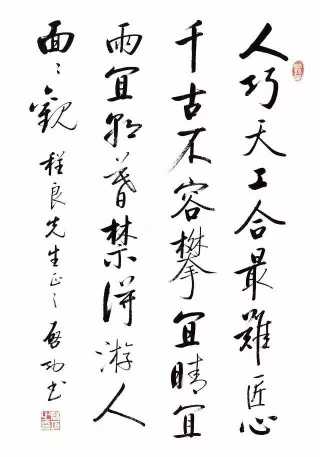 人巧天工合最難匠心
千古不容攀宜晴宜
雨宜朝暮禁得游人
面〻觀 程良先生正之 启功书